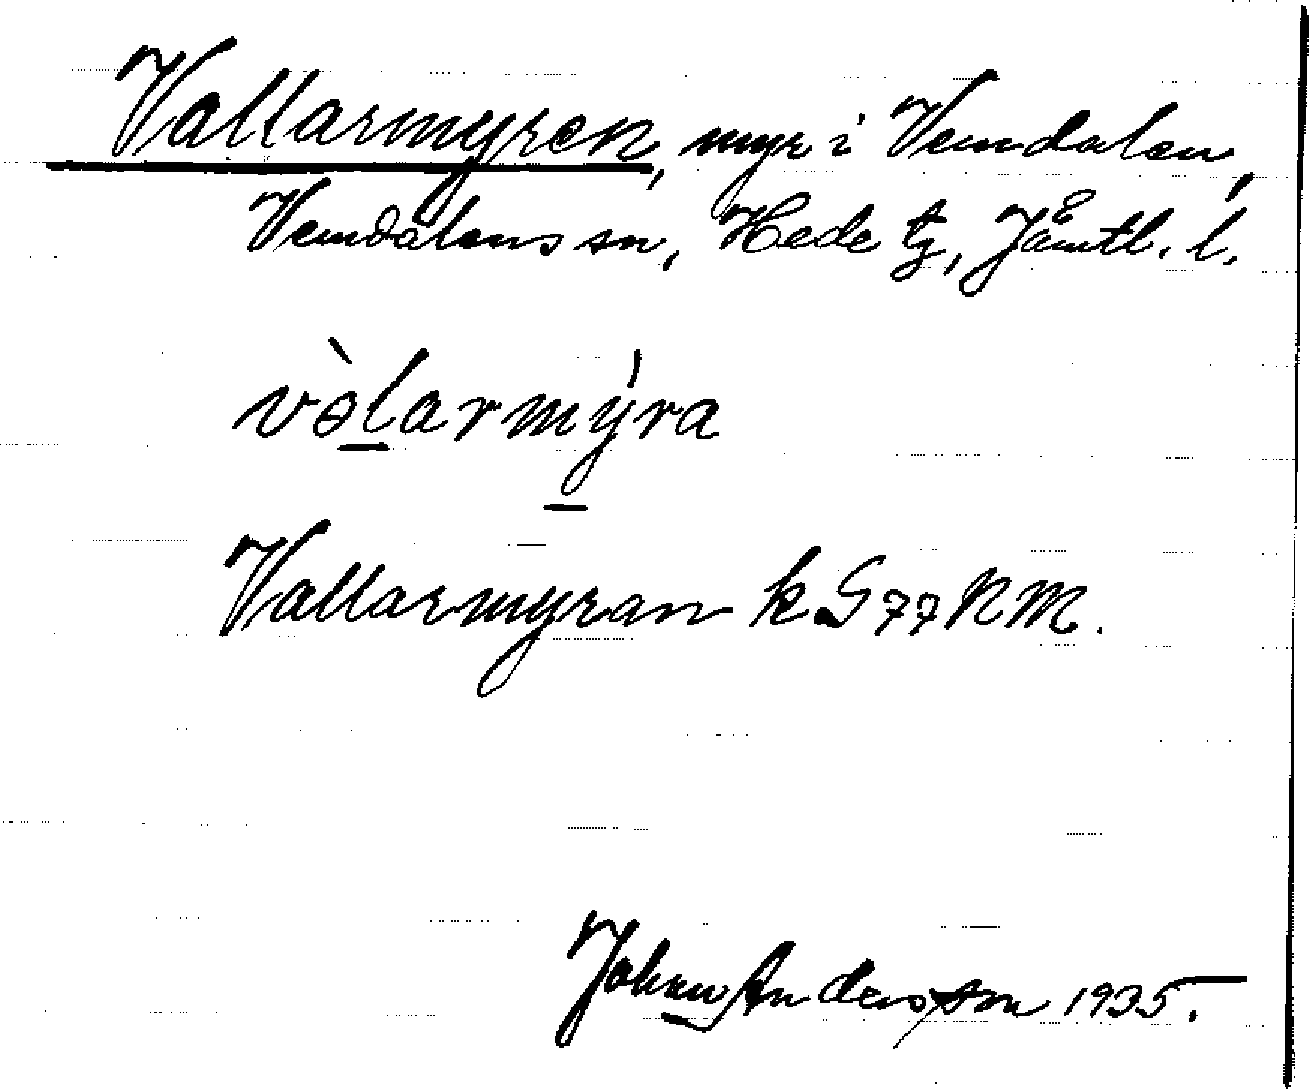 Vallarmyren, myr i Vemdalen,
Vemdalens sn, Hede tg, Jämtl. l.
vòlarmýra
Vallarmyran k.G77NM.
Johan Andersson 1935.